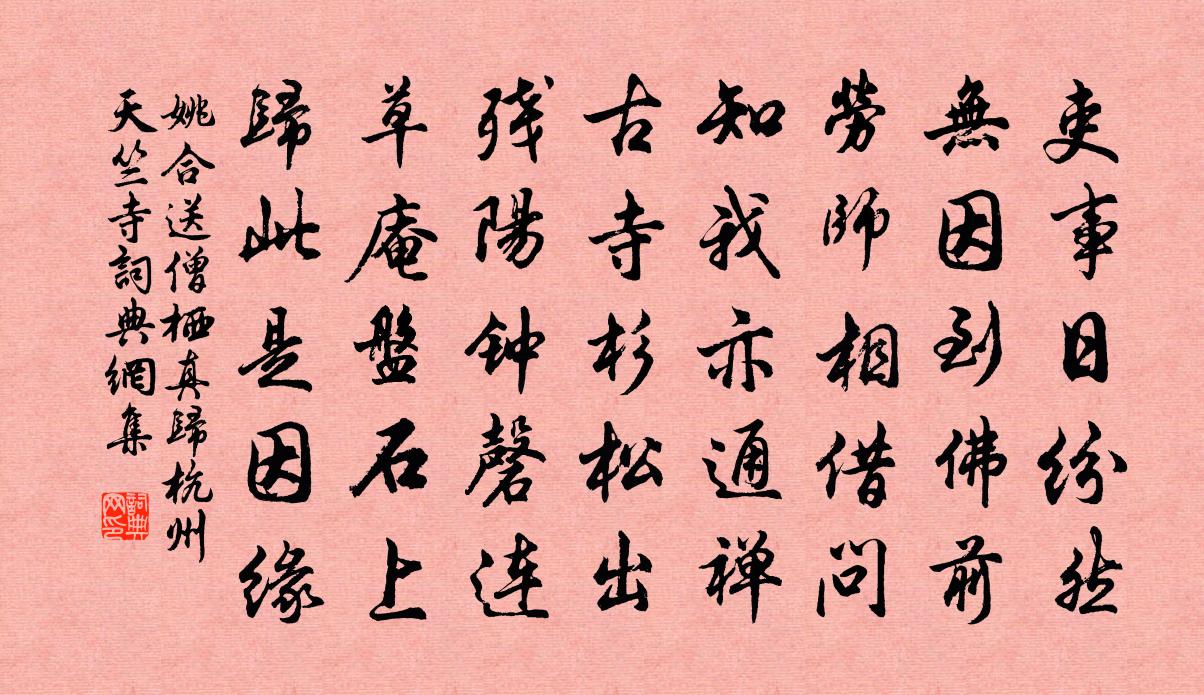 吏事日纷然
無因到佛前
勞師相借问
知我亦通禅
古寺杉松出
残陽钟磬连
草庵盤石上
歸此是因缘
姚合送僧栖真歸杭州
天竺寺詞典網集
詞典
网印